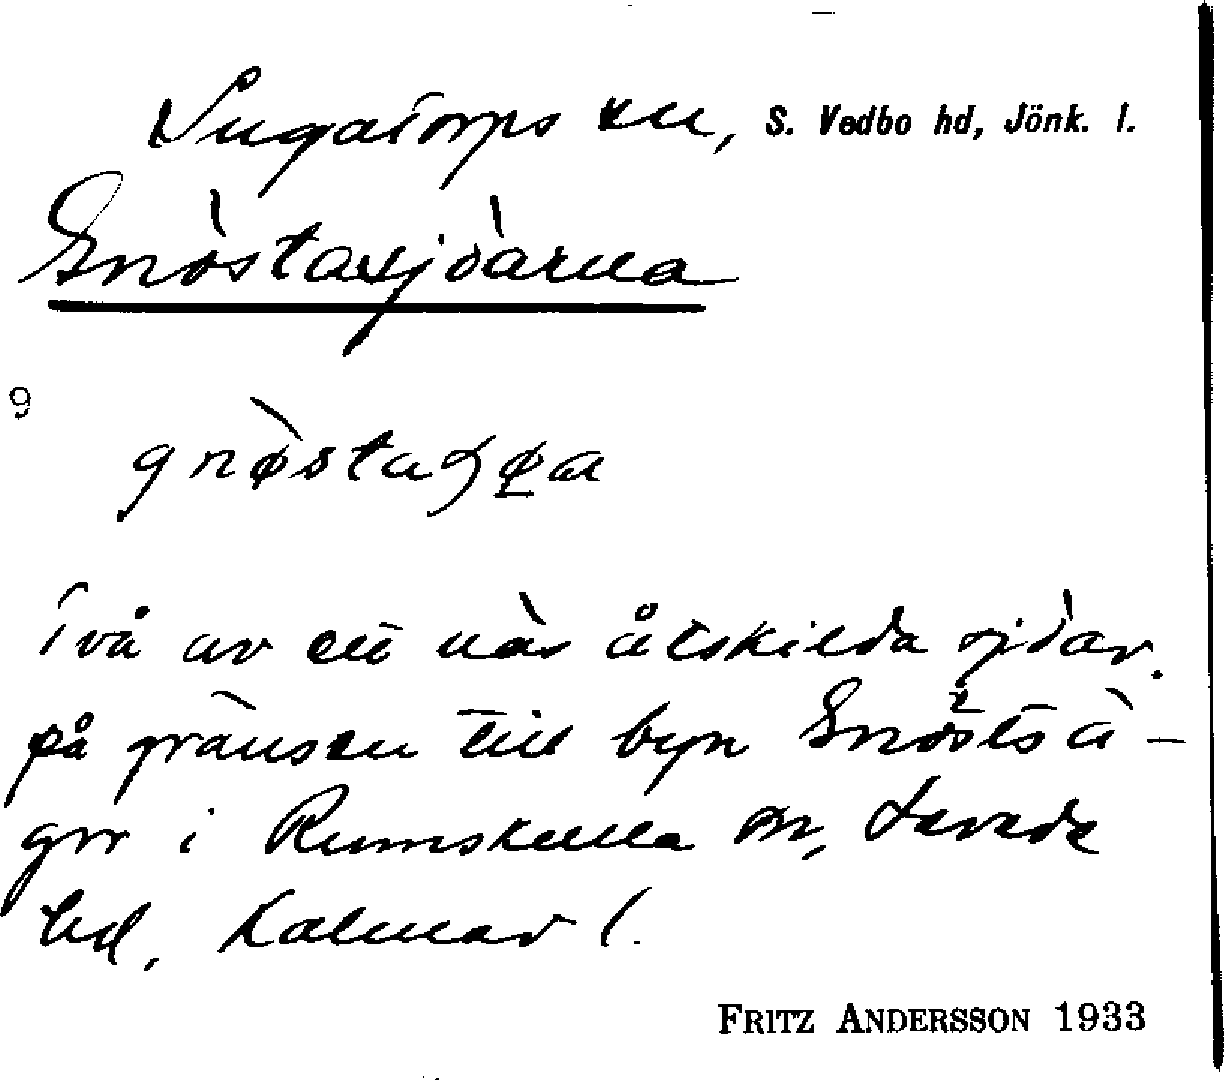 Ingatorps sn, S. Vedbo hd, Jönk. l.
Gnöstasjöarna
9
Två av ett näs åtskilda sjöar.
på gränsen till byn Gnöstsä-
gor i Rumskulla sn, Sevede
hd, Kalmar l.
FRITZ ANDERSSON 1933